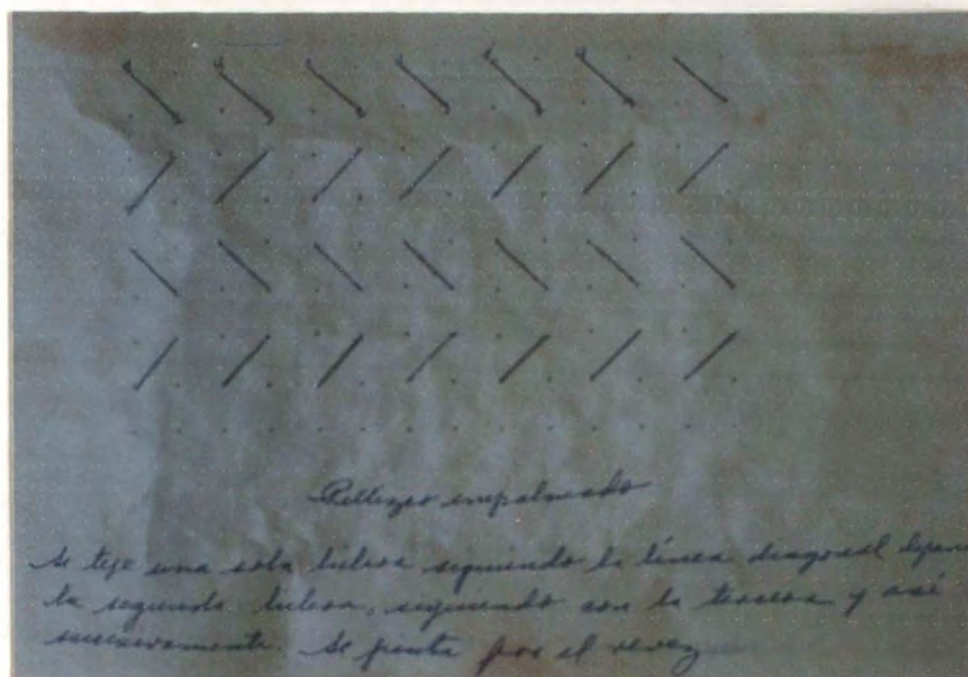 Pellizco empalmeado
Se teje una sola hilera siguiendo la línea diagonal dejand
la segunda hilera, siguiendo con la tercera y así
sucesivamente. Se punta por el revez